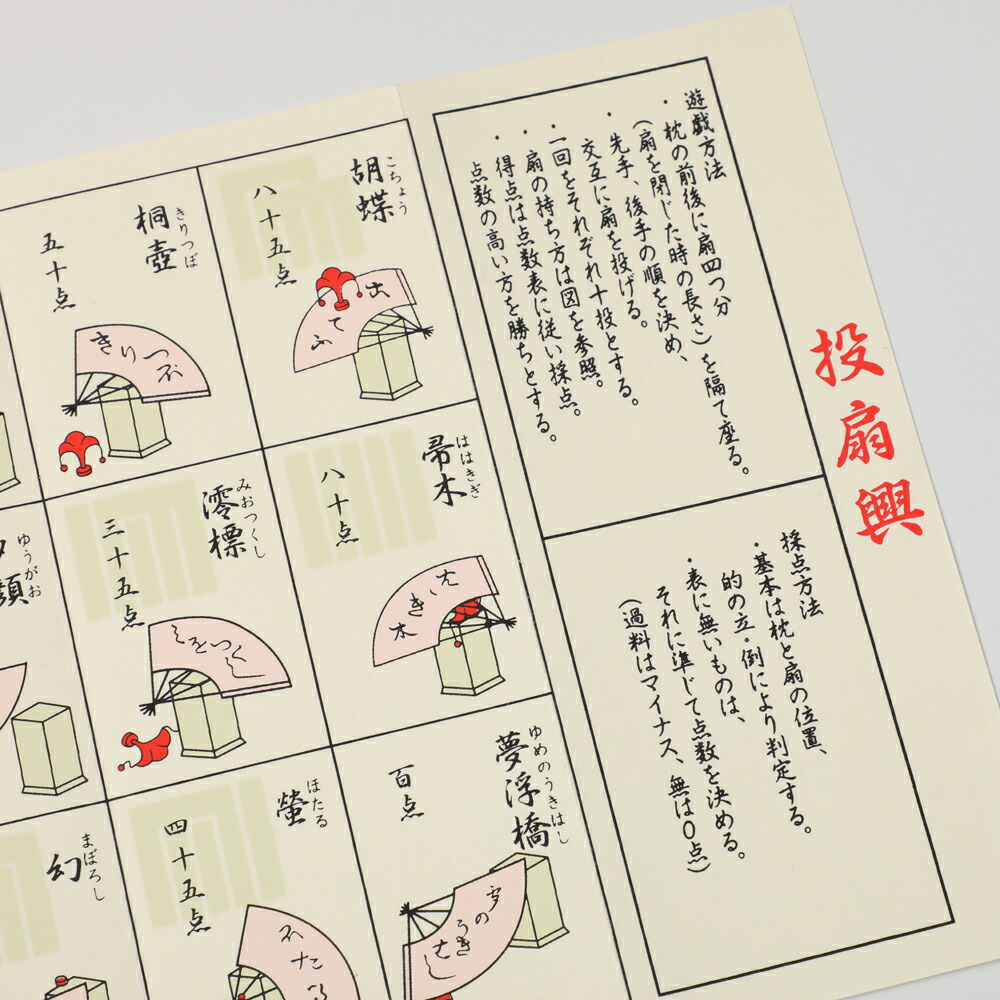 投扇興
遊戯方法
・枕の前後に扇四つ分
(扇を閉じた時の長さ)を隔て座る。
・先手、後手の順を決め、
交互に扇を投げる。
・一回をそれぞれ十投とする。
・扇の持ち方は図を参照。
・得点は点数表に従い採点。
点数の高い方を勝ちとする。
採点方法
・基本は枕と扇の位置、
的の立・倒により判定する。
・表に無いものは、
それに準じて点数を決める。
(過料はマイナス、無は0点)
胡蝶
こちょう
八十五点
帚木
ははきぎ
八十点
夢浮橋
ゆめのうきはし
百点
桐壺
きりつぼ
五十点
澪標
みおつくし
三十五点
螢
ほたる
四十五点
ゆうがお
幻
まぼろし